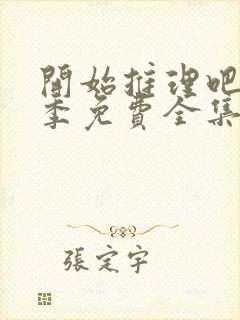 開始推理吧
季免費全集
張定宇